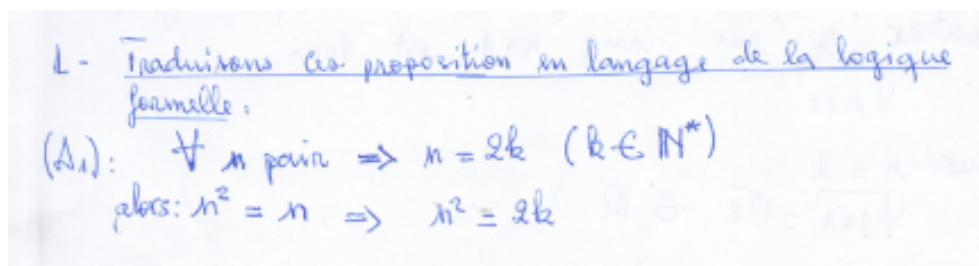 1 - Traduisons ces proposition en langage de la logique
formelle.
(Δ₁): ∀ n pair => n = 2k (k ∈ ℕ*)
alors: n² = n => n² = 2k